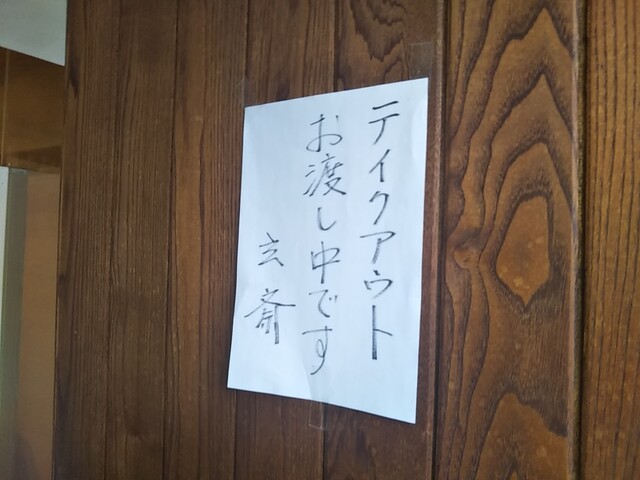 テイクアウト
お渡し中です
玄斎